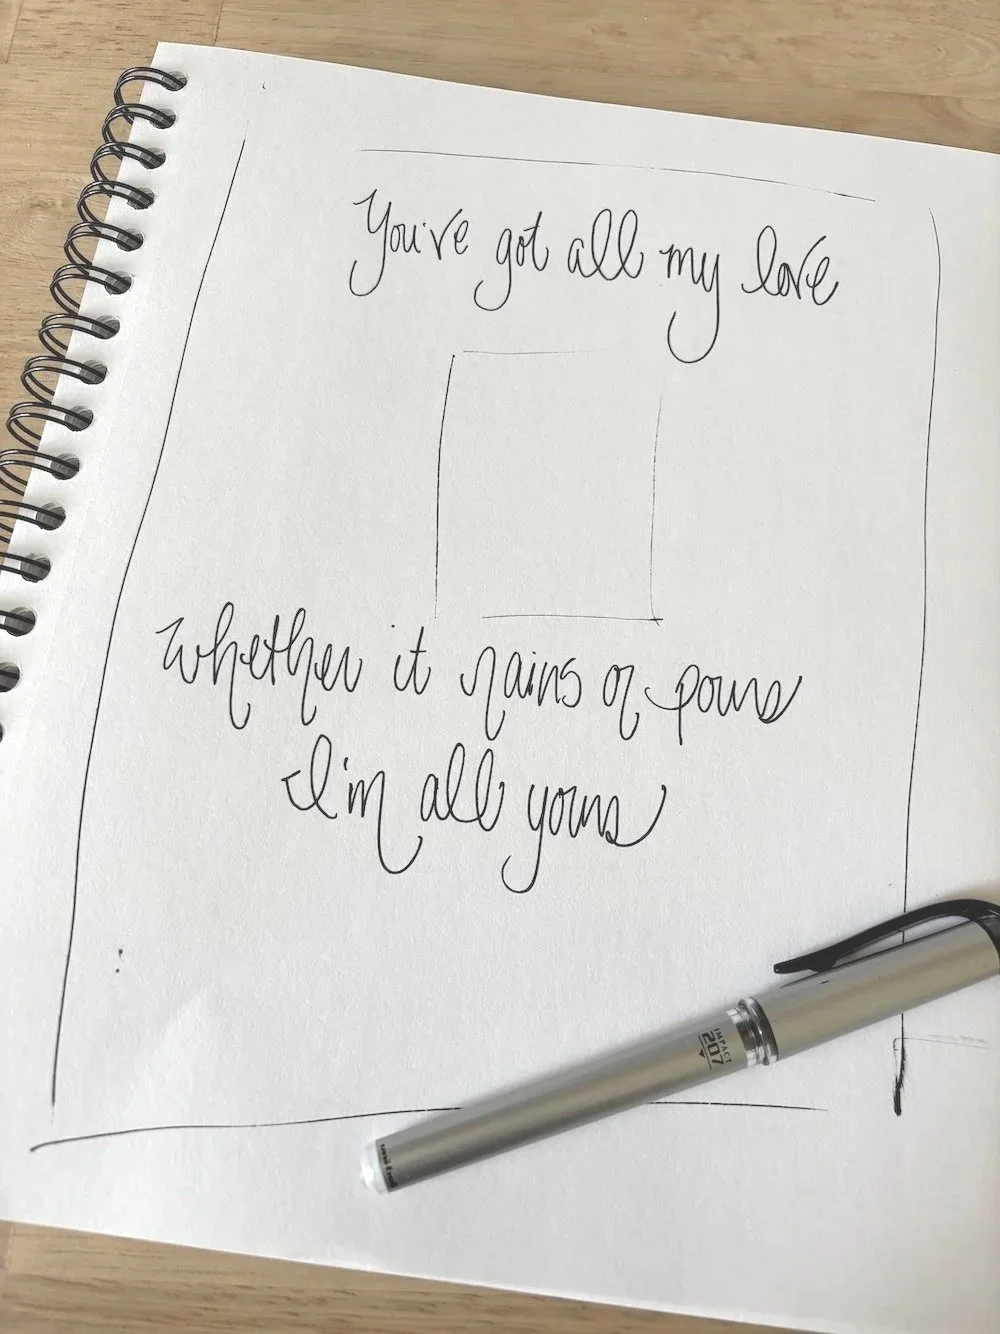 You've got all my love
whether it rains or pours
I'm all yours
IMPACT
207
uni-ball